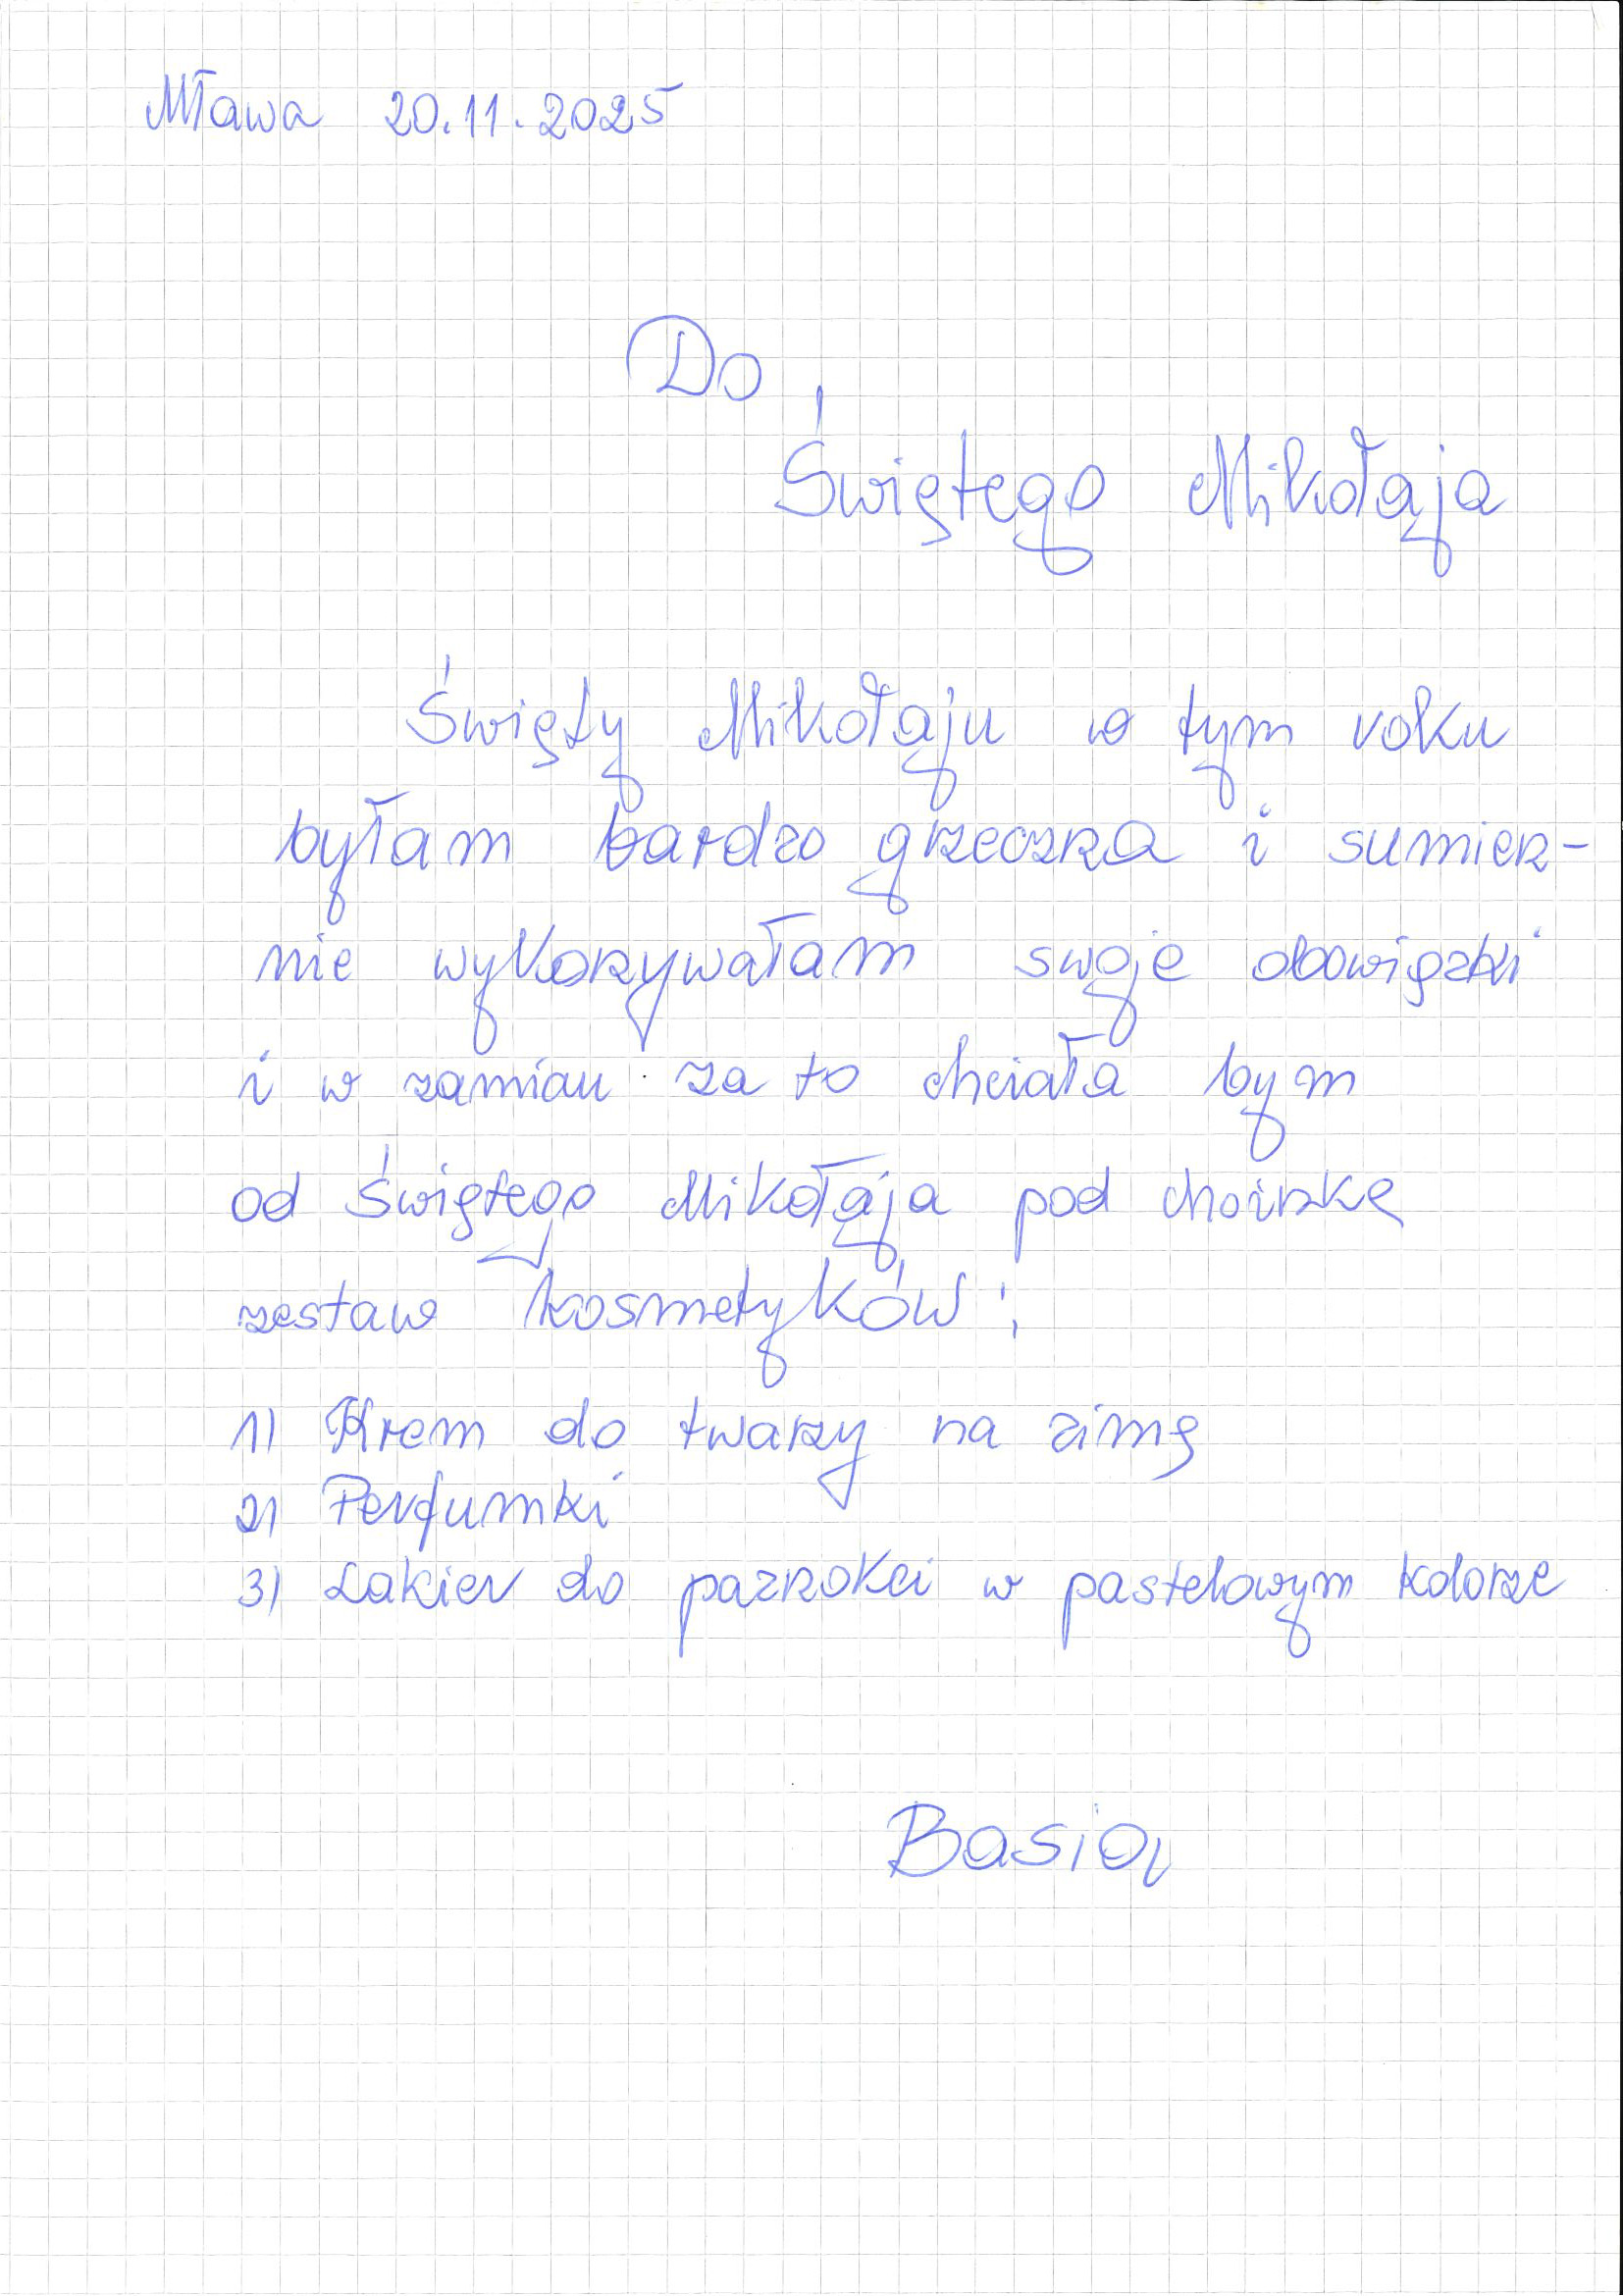 Mława 20.11.2025
Do
Świętego Mikołaja
Święty Mikołaju w tym roku
byłam bardzo grzeczna i sumien-
nie wykonywałam swoje obowiązki
i w zamian za to chciała bym
od Świętego Mikołaja pod choinkę
zestaw kosmetyków:
1) Krem do twarzy na zimę
2) Perfumki
3) Lakier do paznokci w pastelowym kolorze
Basia